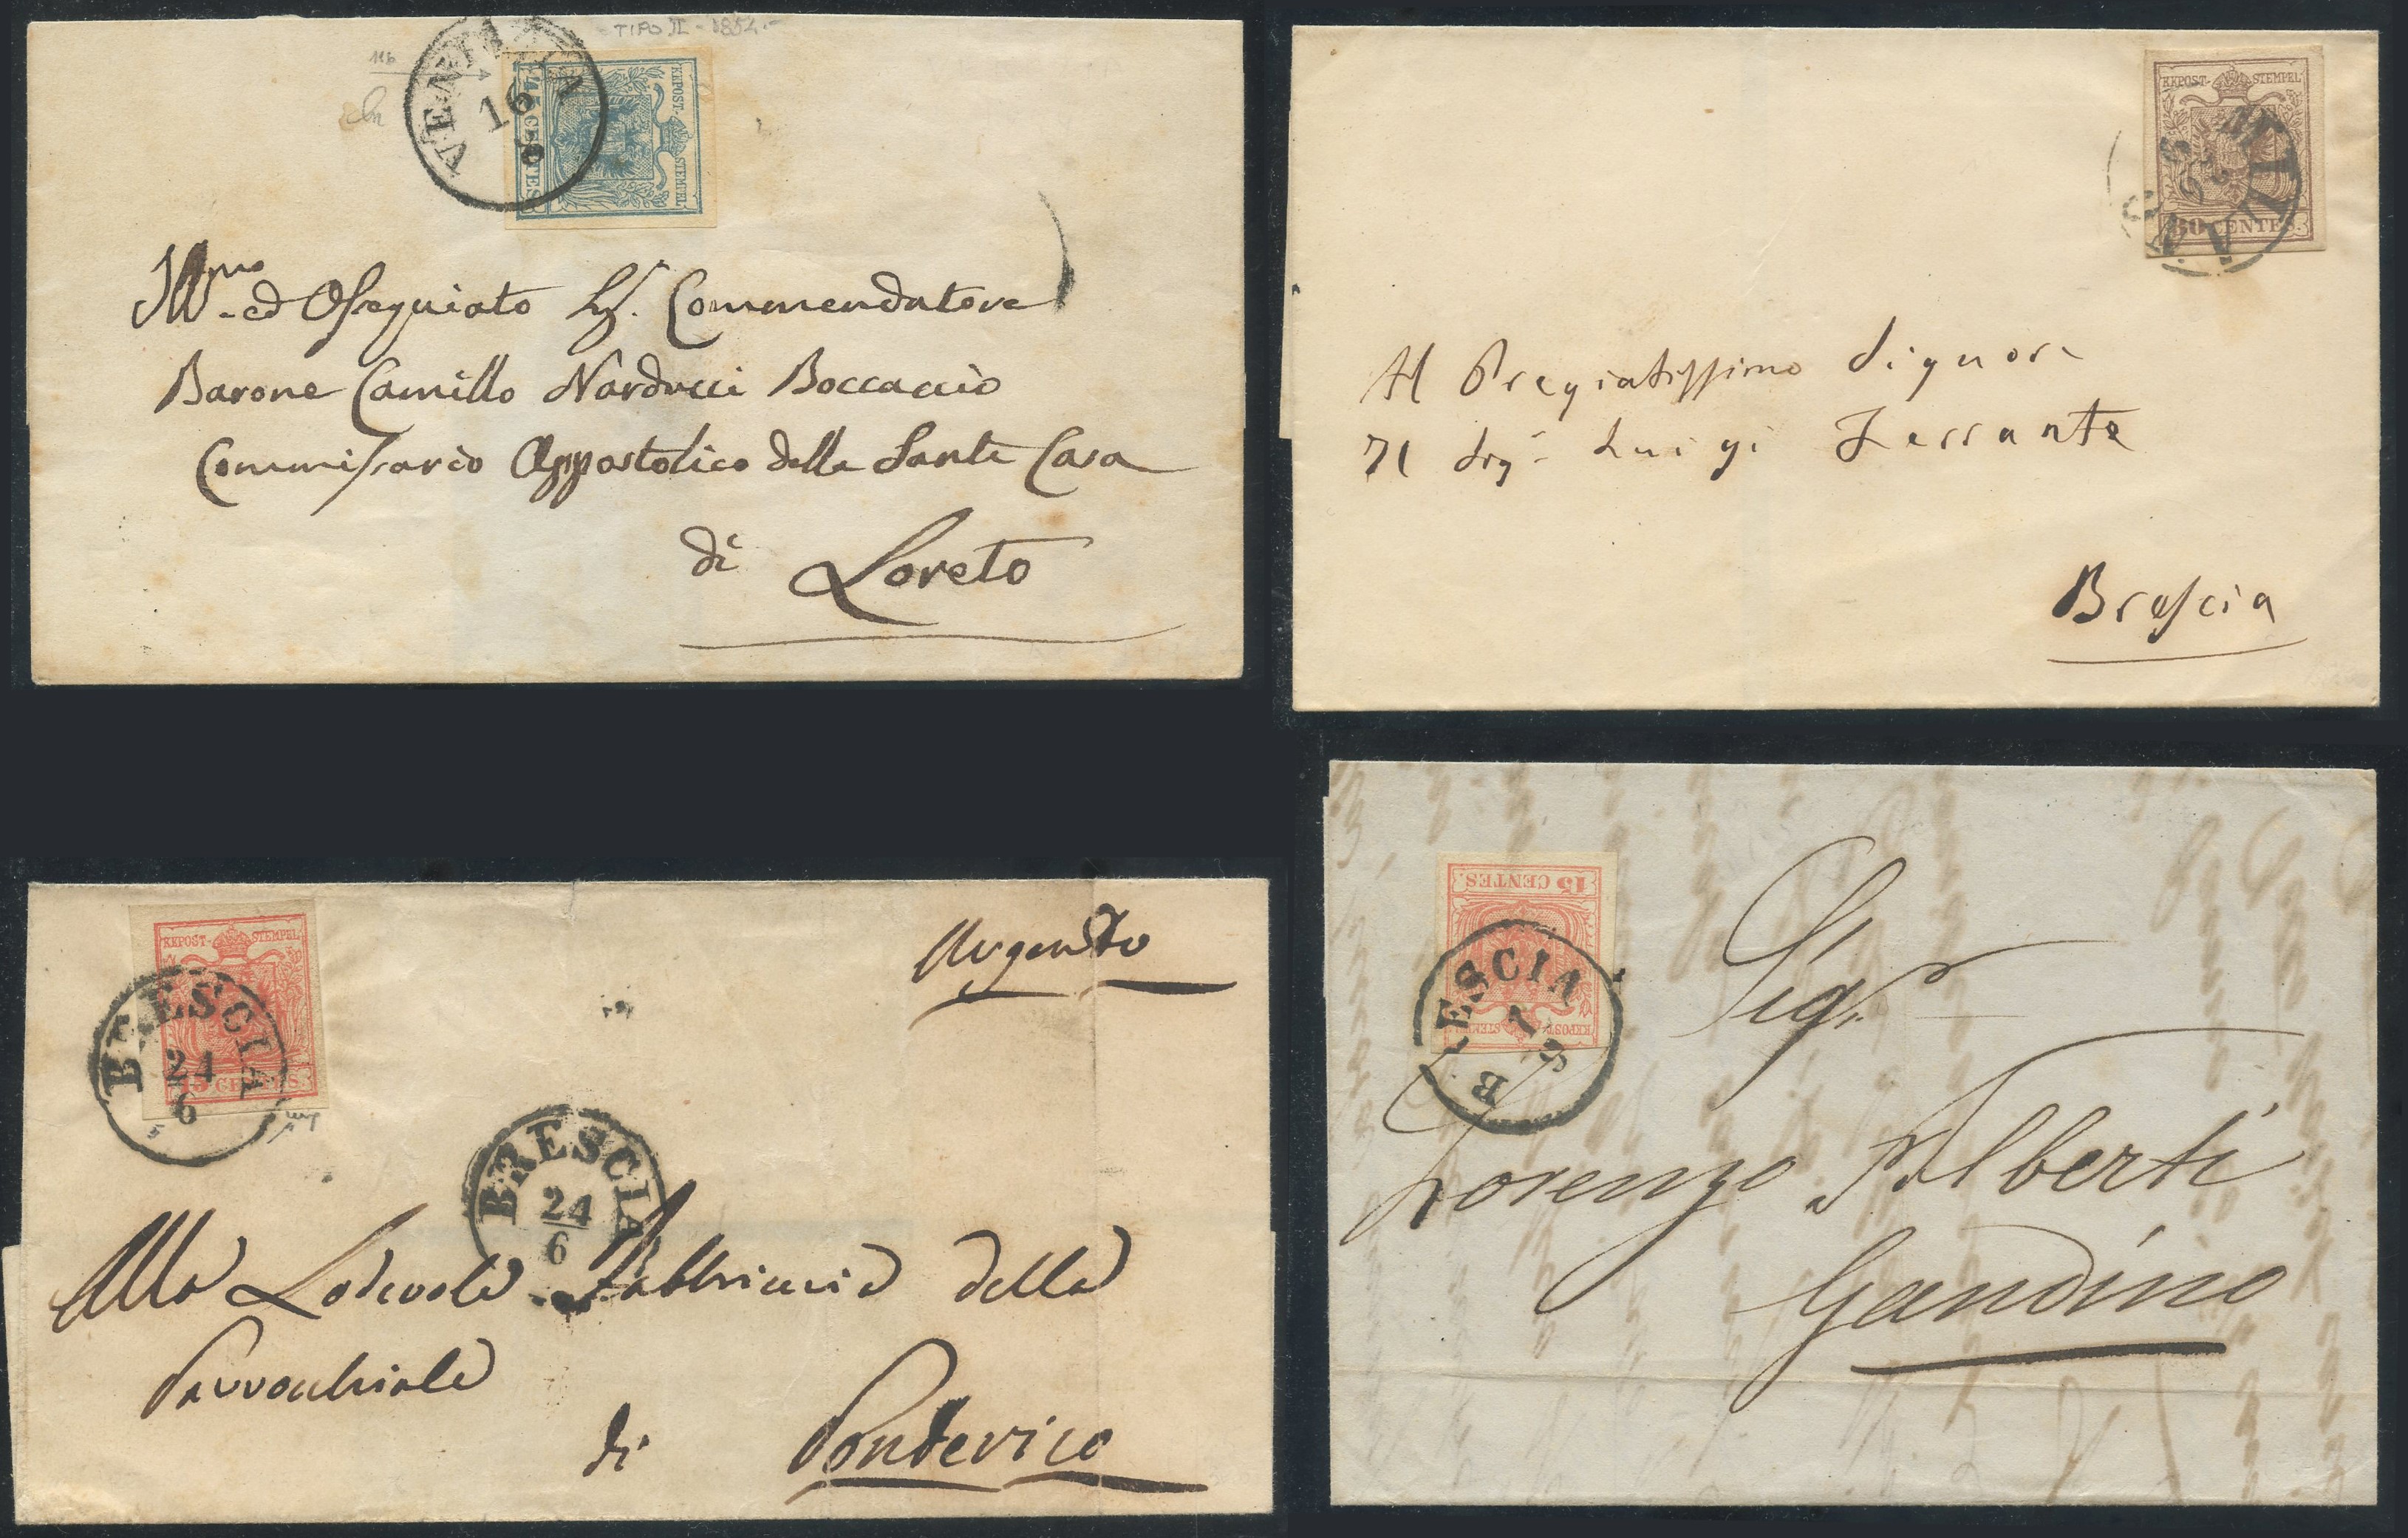 TIPO II - 1854.-
116
VENEZIA
16
8
KKPOST-STEMPEL
45 CENTES.
Ill.mo ed Ossequiato Sig. Commendatore
Barone Camillo Narducci Boccaccio
Commissario Appostolico della Santa Casa
di Loreto
KKPOST-STEMPEL
30 CENTES.
MILANO
Al Pregiatissimo Signore
Il Sig.r Luigi Ferrante
Brescia
KKPOST-STEMPEL
15 CENTES.
BRESCIA
24
6
Urgente
BRESCIA
24
6
Alla Lodevole Fabbriceria della
Parrocchiale
di Pontevico
15 CENTES.
KKPOST-STEMPEL
BRESCIA
Sigr
Lorenzo Alberti
Gandino